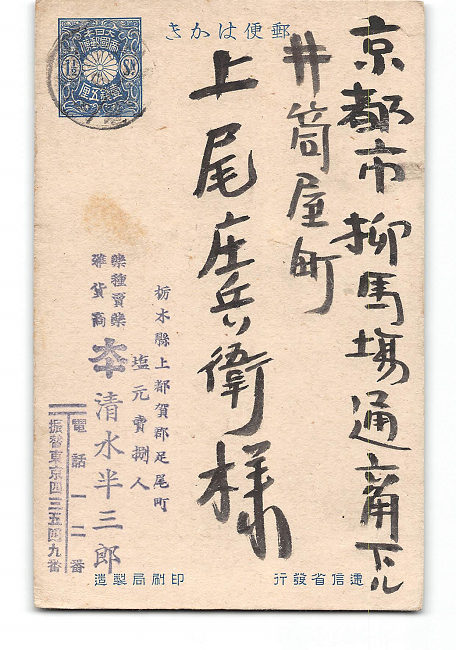 郵便はかき
大日本
帝國郵便
1½
Sn
壹錢五厘
京都市柳馬場通六角下ル
井筒屋町
上尾庄兵衛様
栃木縣上都賀郡足尾町
塩元賣捌人
藥種賣藥
雜貨商
清水半三郎
電話一二番
振替東京四三五四九番
遞信省發行
印刷局製造